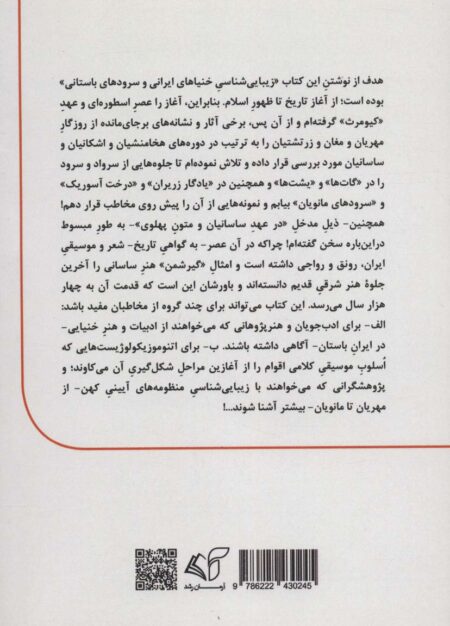 هدف از نوشتنِ این کتاب «زیبایی‌شناسیِ خنیاهای ایرانی و سرودهای باستانی»
بوده است؛ از آغاز تاریخ تا ظهورِ اسلام. بنابراین، آغاز را عصرِ اسطوره‌ای و عهدِ
«کیومرث» گرفته‌ام و از آن پس، برخی آثار و نشانه‌های برجای‌مانده از روزگارِ
مهریان و مغان و زرتشتیان را به ترتیب در دوره‌های هخامنشیان و اشکانیان و
ساسانیان مورد بررسی قرار داده و تلاش نموده‌ام تا جلوه‌هایی از سرواد و سرود
را در «گات‌ها» و «یشت‌ها» و همچنین در «یادگار زریران» و «درخت آسوریک»
و «سرودهای مانویان» بیابم و نمونه‌هایی از آن را پیش روی مخاطب قرار دهم!
همچنین- ذیلِ مدخلِ «در عهدِ ساسانیان و متونِ پهلوی»- به طورِ مبسوط
دراین‌باره سخن گفته‌ام! چراکه در آن عصر- به گواهیِ تاریخ- شعر و موسیقیِ
ایران، رونق و رواجی داشته است و امثالِ «گیرشمن» هنرِ ساسانی را آخرین
جلوۀ هنرِ شرقیِ قدیم دانسته‌اند و باورشان این است که قدمت آن به چهار
هزار سال می‌رسد. این کتاب می‌تواند برای چند گروه از مخاطبان مفید باشد:
الف- برای ادب‌جویان و هنرپژوهانی که می‌خواهند از ادبیات و هنرِ خنیایی-
در ایرانِ باستان- آگاهی داشته باشند. ب- برای اتنوموزیکولوژیست‌هایی که
اُسلوبِ موسیقیِ کلامی اقوام را از آغازین مراحلِ شکل‌گیریِ آن می‌کاوند؛ و
پژوهشگرانی که می‌خواهند با زیبایی‌شناسیِ منظومه‌های آیینیِ کهن- از
مهریان تا مانویان- بیشتر آشنا شوند...!
آرمان رشد
9 786222 430245